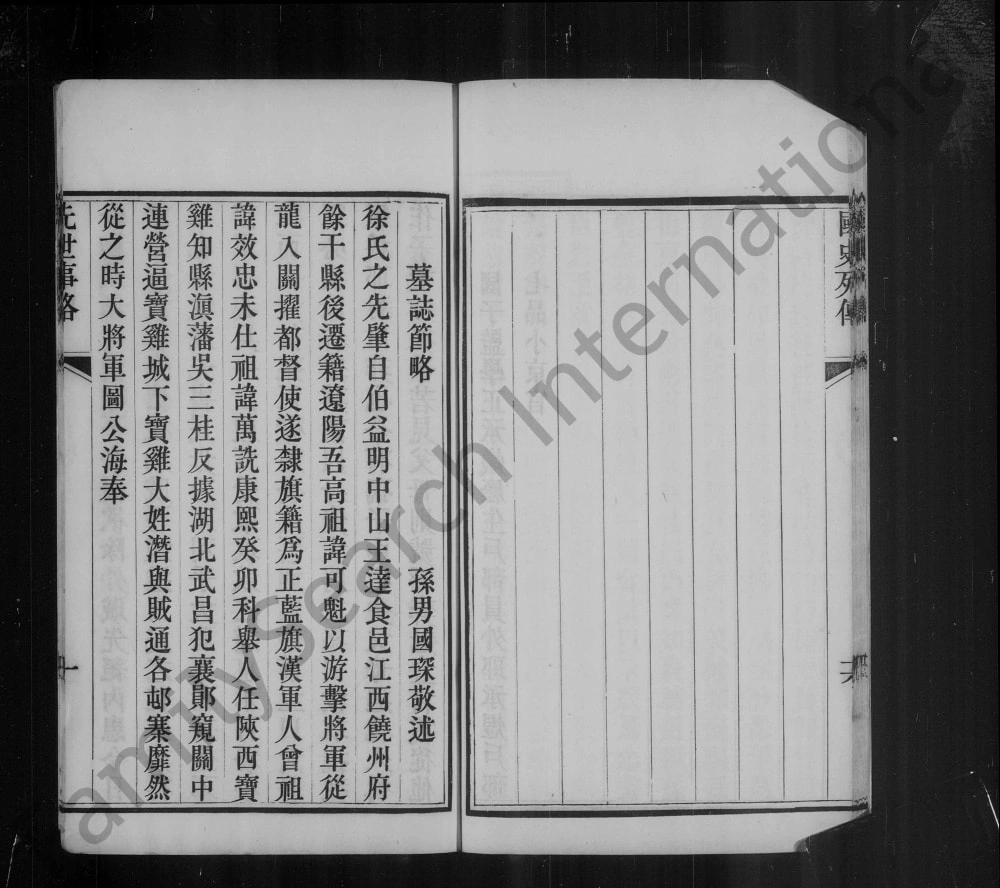 國史列傳
墓誌節略　孫男國琛敬述
徐氏之先肇自伯益明中山王達食邑江西饒州府
餘干縣後遷籍遼陽吾高祖諱可魁以游擊將軍從
龍入關擢都督使遂隸旗籍爲正藍旗漢軍人曾祖
諱效忠未仕祖諱萬詵康熙癸卯科舉人任陝西寶
雞知縣滇藩吳三桂反據湖北武昌犯襄鄖窺關中
連營逼寶雞城下寶雞大姓潛與賊通各邨寨靡然
從之時大將軍圖公海奉
先世事略
FamilySearch International